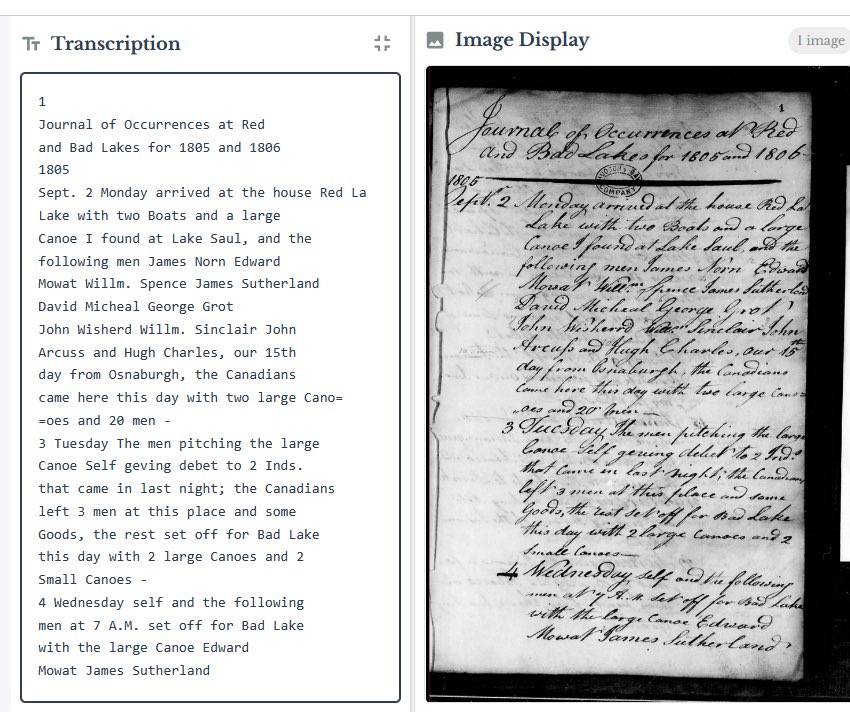 Transcription
1
Journal of Occurrences at Red
and Bad Lakes for 1805 and 1806
1805
Sept. 2 Monday arrived at the house Red La
Lake with two Boats and a large
Canoe I found at Lake Saul, and the
following men James Norn Edward
Mowat Willm. Spence James Sutherland
David Micheal George Grot
John Wisherd Willm. Sinclair John
Arcuss and Hugh Charles, our 15th
day from Osnaburgh, the Canadians
came here this day with two large Cano=
=oes and 20 men -
3 Tuesday The men pitching the large
Canoe Self geving debet to 2 Inds.
that came in last night; the Canadians
left 3 men at this place and some
Goods, the rest set off for Bad Lake
this day with 2 large Canoes and 2
Small Canoes -
4 Wednesday self and the following
men at 7 A.M. set off for Bad Lake
with the large Canoe Edward
Mowat James Sutherland
Image Display
1 image
1
Journal of Occurrences at Red
and Bad Lakes for 1805 and 1806
HUDSON'S BAY
COMPANY
1805
Sept. 2 Monday arrived at the house Red La
Lake with two Boats and a large
Canoe I found at Lake Saul, and the
following men James Norn Edward
Mowat Willm. Spence James Sutherland
David Micheal George Grot
John Wisherd Willm. Sinclair John
Arcuss and Hugh Charles, our 15th
day from Osnaburgh, the Canadians
came here this day with two large Cano=
=oes and 20 men -
3 Tuesday The men pitching the large
Canoe Self geving debet to 2 Inds.
that came in last night; the Canadians
left 3 men at this place and some
Goods, the rest set off for Bad Lake
this day with 2 large Canoes and 2
Small Canoes -
4 Wednesday self and the following
men at 7 A.M. set off for Bad Lake
with the large Canoe Edward
Mowat James Sutherland